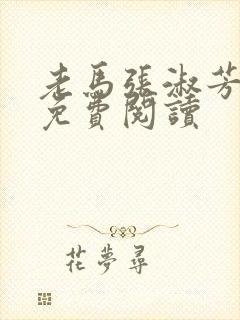 老馬張淑芳
免費閱讀
花夢尋